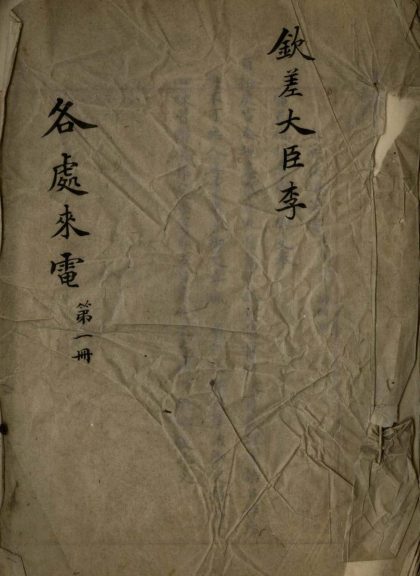 欽差大臣李
各處來電 第一冊